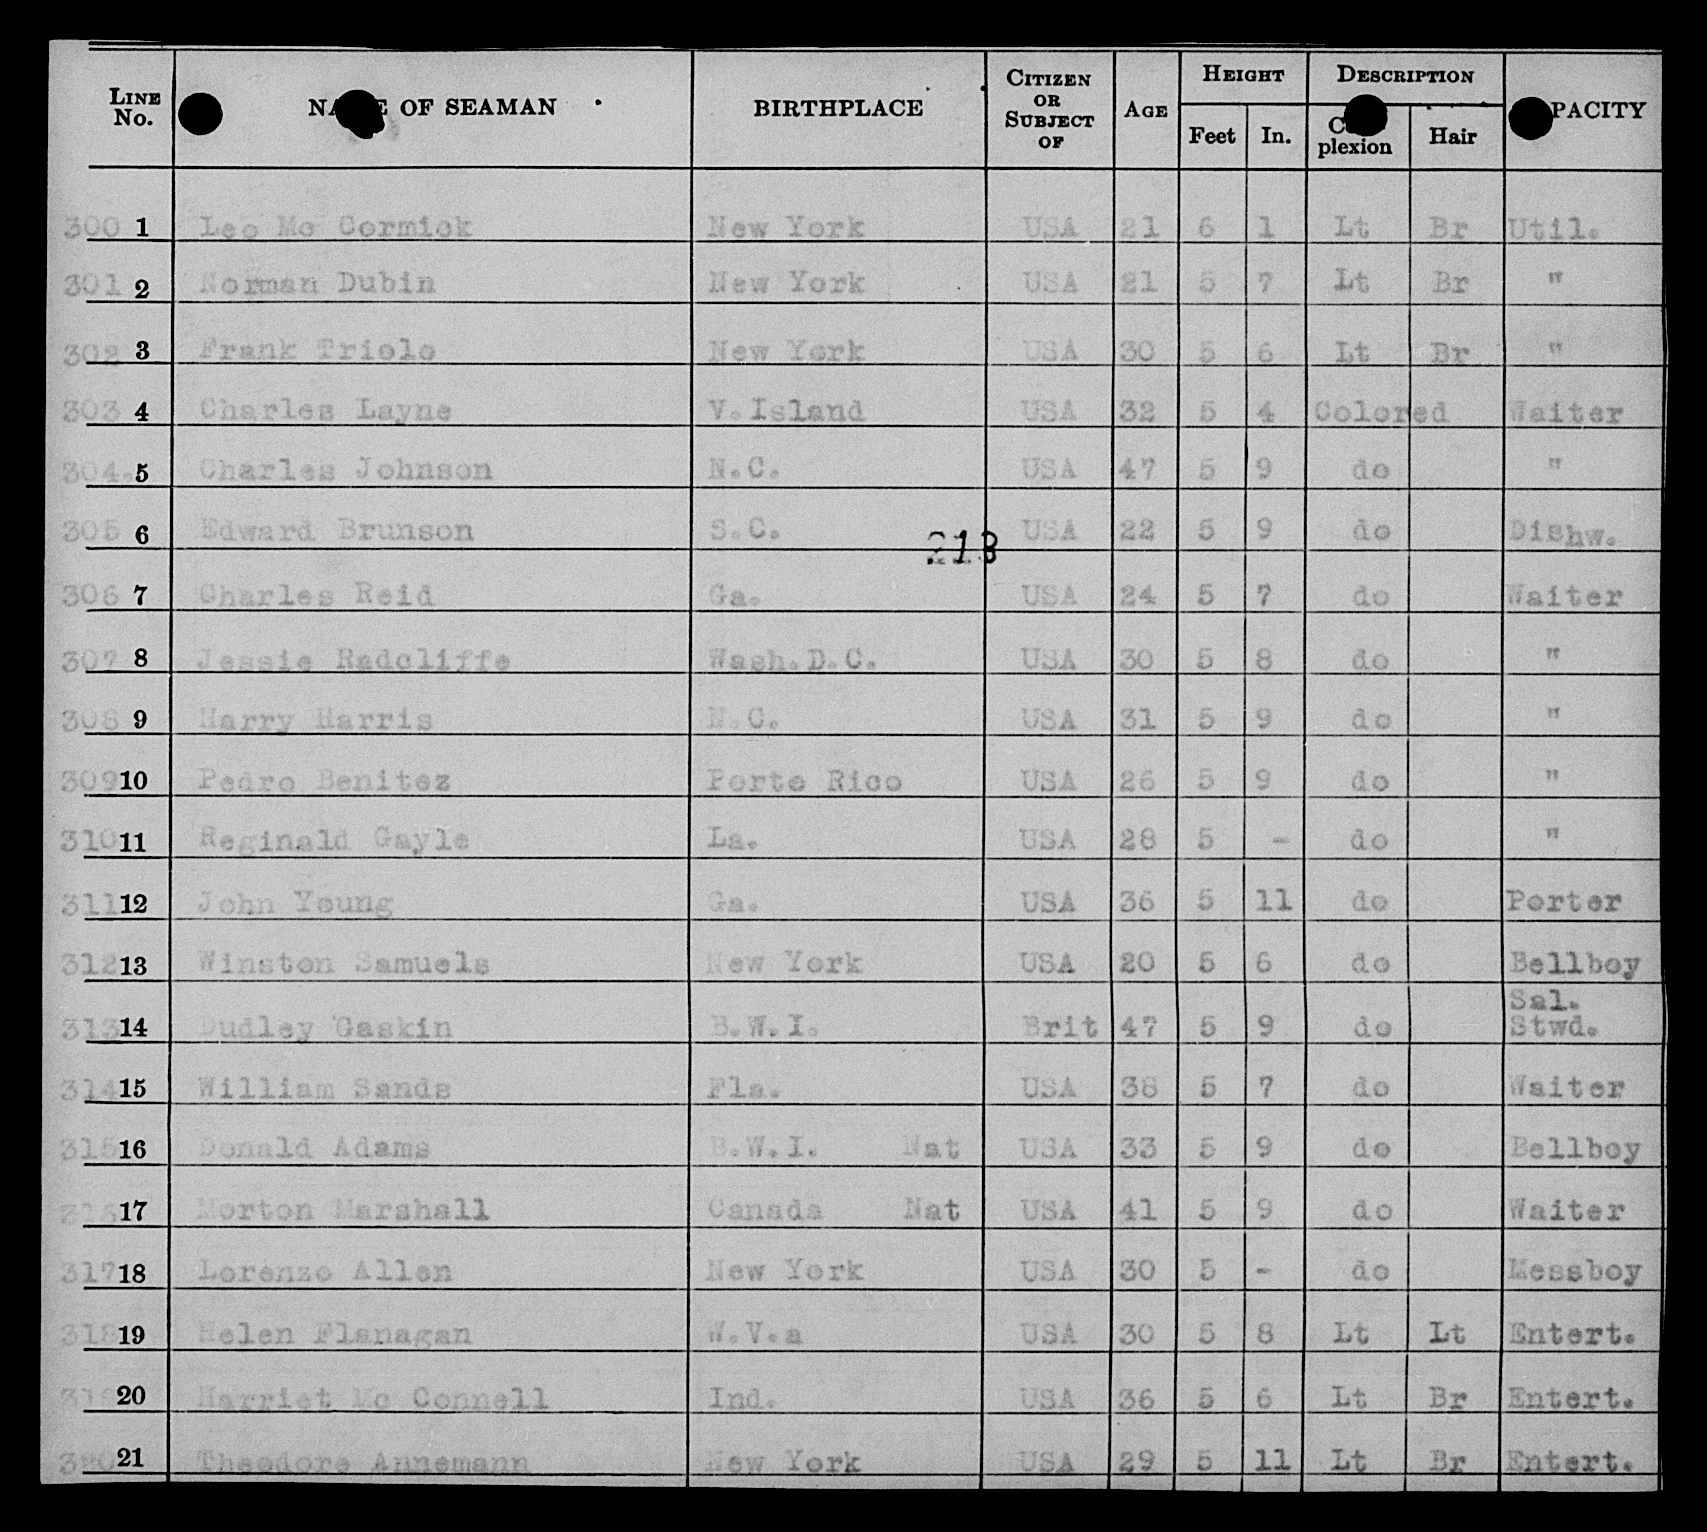 LINE No. NAME OF SEAMAN BIRTHPLACE CITIZEN OR SUBJECT OF AGE HEIGHT Feet In. DESCRIPTION Complexion Hair PACITY
300 1 Leo Mc Cormick New York USA 21 6 1 Lt Br Util.
301 2 Norman Dubin New York USA 21 5 7 Lt Br "
302 3 Frank Triolo New York USA 30 5 6 Lt Br "
303 4 Charles Layne V.Island USA 32 5 4 Colored Waiter
304. 5 Charles Johnson N.C. USA 47 5 9 do "
305 6 Edward Brunson S.C. USA 22 5 9 do Dishw.
213
306 7 Charles Reid Ga. USA 24 5 7 do Waiter
307 8 Jessie Radcliffe Wash.D.C. USA 30 5 8 do "
308 9 Harry Harris N.C. USA 31 5 9 do "
309 10 Pedro Benitez Porto Rico USA 26 5 9 do "
310 11 Reginald Gayle La. USA 28 5 - do "
311 12 John Young Ga. USA 36 5 11 do Porter
312 13 Winston Samuels New York USA 20 5 6 do Bellboy
313 14 Dudley Gaskin B.W.I. Brit 47 5 9 do Sal. Stwd.
314 15 William Sands Fla. USA 38 5 7 do Waiter
315 16 Donald Adams B.W.I. Nat USA 33 5 9 do Bellboy
316 17 Morton Marshall Canada Nat USA 41 5 9 do Waiter
317 18 Lorenzo Allen New York USA 30 5 - do Messboy
318 19 Helen Flanagan W.V.a USA 30 5 8 Lt Lt Entert.
319 20 Harriet Mc Connell Ind. USA 36 5 6 Lt Br Entert.
320 21 Theodore Annemann New York USA 29 5 11 Lt Br Entert.